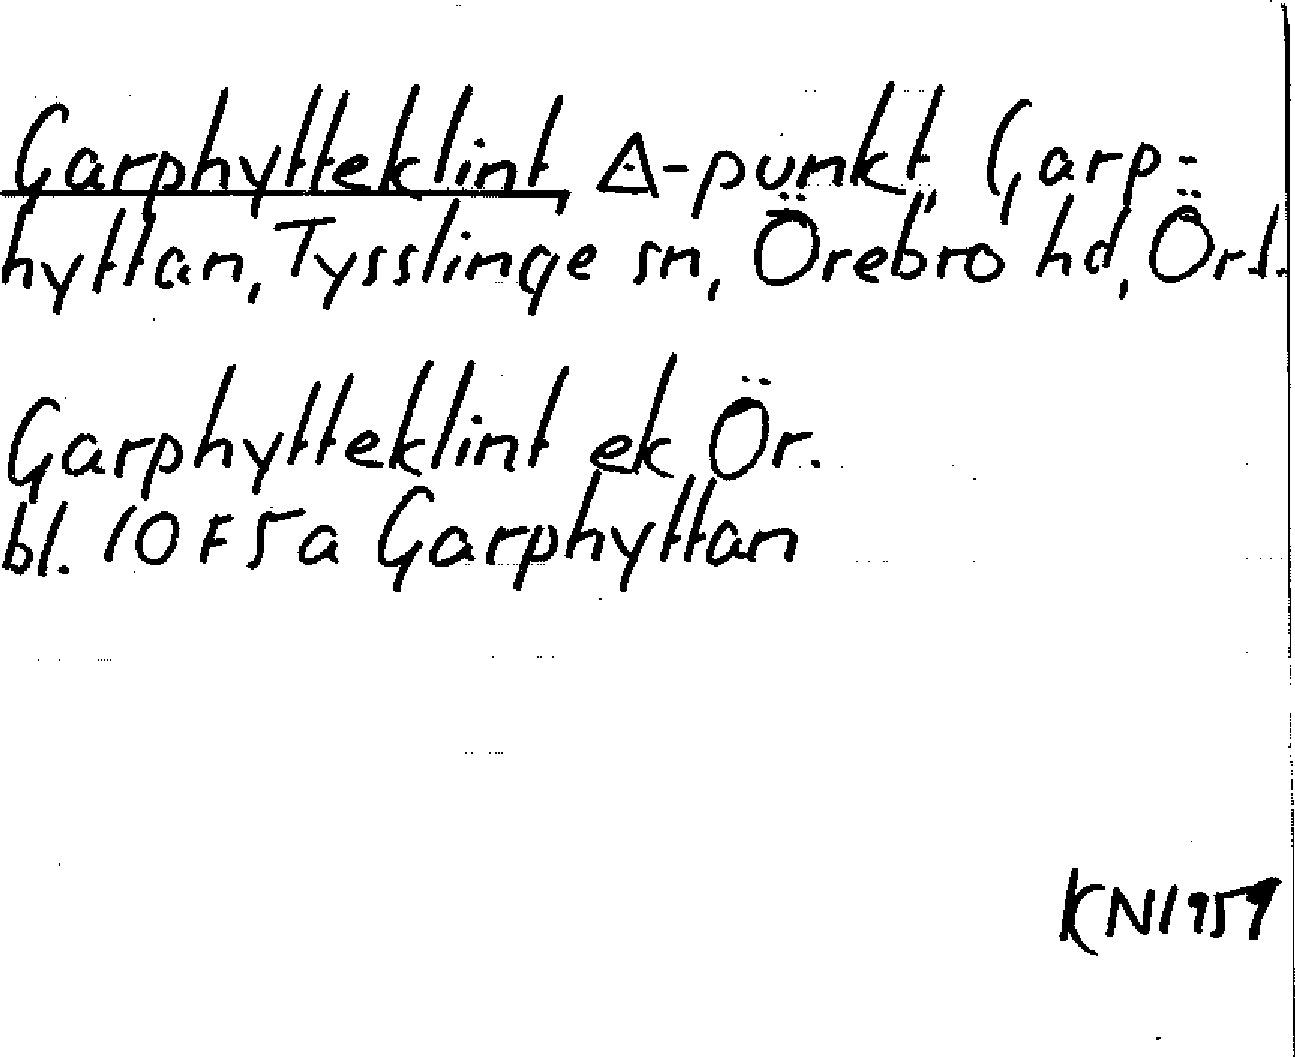 Garphytteklint, △-punkt, Garp-
hyttan, Tysslinge sn, Örebro hd, Örl.
Garphytteklint ek Ör.
bl. 10 F 5 a Garphyttan
KN 1959